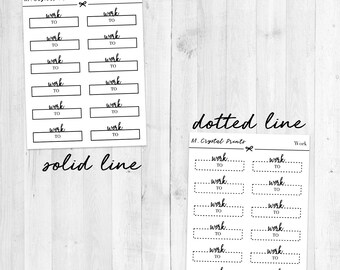 work work
TO TO
work work
TO TO
work work
TO TO
work work
TO TO
work work
TO TO
work work
TO TO
solid line
dotted line
M. Crystal Prints Work
work work
TO TO
work work
TO TO
work work
TO TO
work work
TO TO
work work
TO TO
work work